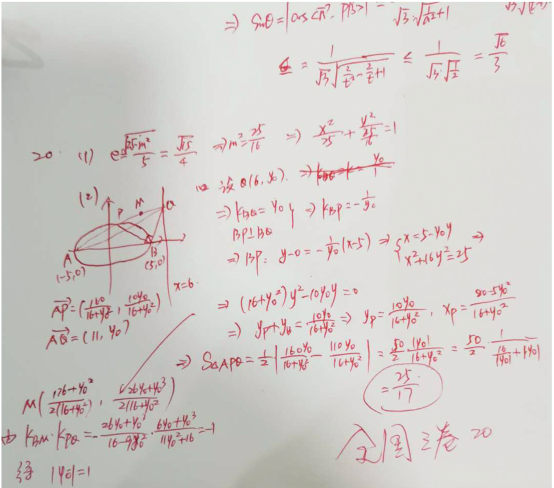 ⇒ Sinθ = |cos<n, PB>| = 1/(√3·√(1/λ²+1))
= 1/(√3√(2/t²-2/t+1)) ≤ 1/(√3·√(1/2)) = √6/3
20. (1) e = √(25-m²)/5 = √15/4 ⇒ m² = 25/16 ⇒ x²/25 + y²/(25/16) = 1
(2) 设Q(6, y₀). ⇒
⇒ k_BQ = y₀ } ⇒ k_BP = -1/y₀
BP⊥BQ
⇒ BP: y-0 = -1/y₀(x-5) ⇒ { x = 5-y₀y
x²+16y² = 25 ⇒
P M Q
A B
(-5,0) (5,0)
x=6
⇒ (16+y₀²)y² - 10y₀y = 0
⇒ y_P + y_B = 10y₀/(16+y₀²) ⇒ y_P = 10y₀/(16+y₀²), x_P = (80-5y₀²)/(16+y₀²)
AP = (160/(16+y₀²), 10y₀/(16+y₀²))
AQ = (11, y₀)
⇒ S△APQ = 1/2|160y₀/(16+y₀²) - 110y₀/(16+y₀²)| = 50/2 |y₀|/(16+y₀²) = 50/2 · 1/(16/|y₀|+|y₀|)
= 25/17
M((176+y₀²)/(2(16+y₀²)), (26y₀+y₀³)/(2(16+y₀²)))
由 k_BM·k_PQ = -(26y₀+y₀³)/(16-9y₀²) · (6y₀+y₀³)/(11y₀²+16) = -1
得 |y₀| = 1
全国三卷 20